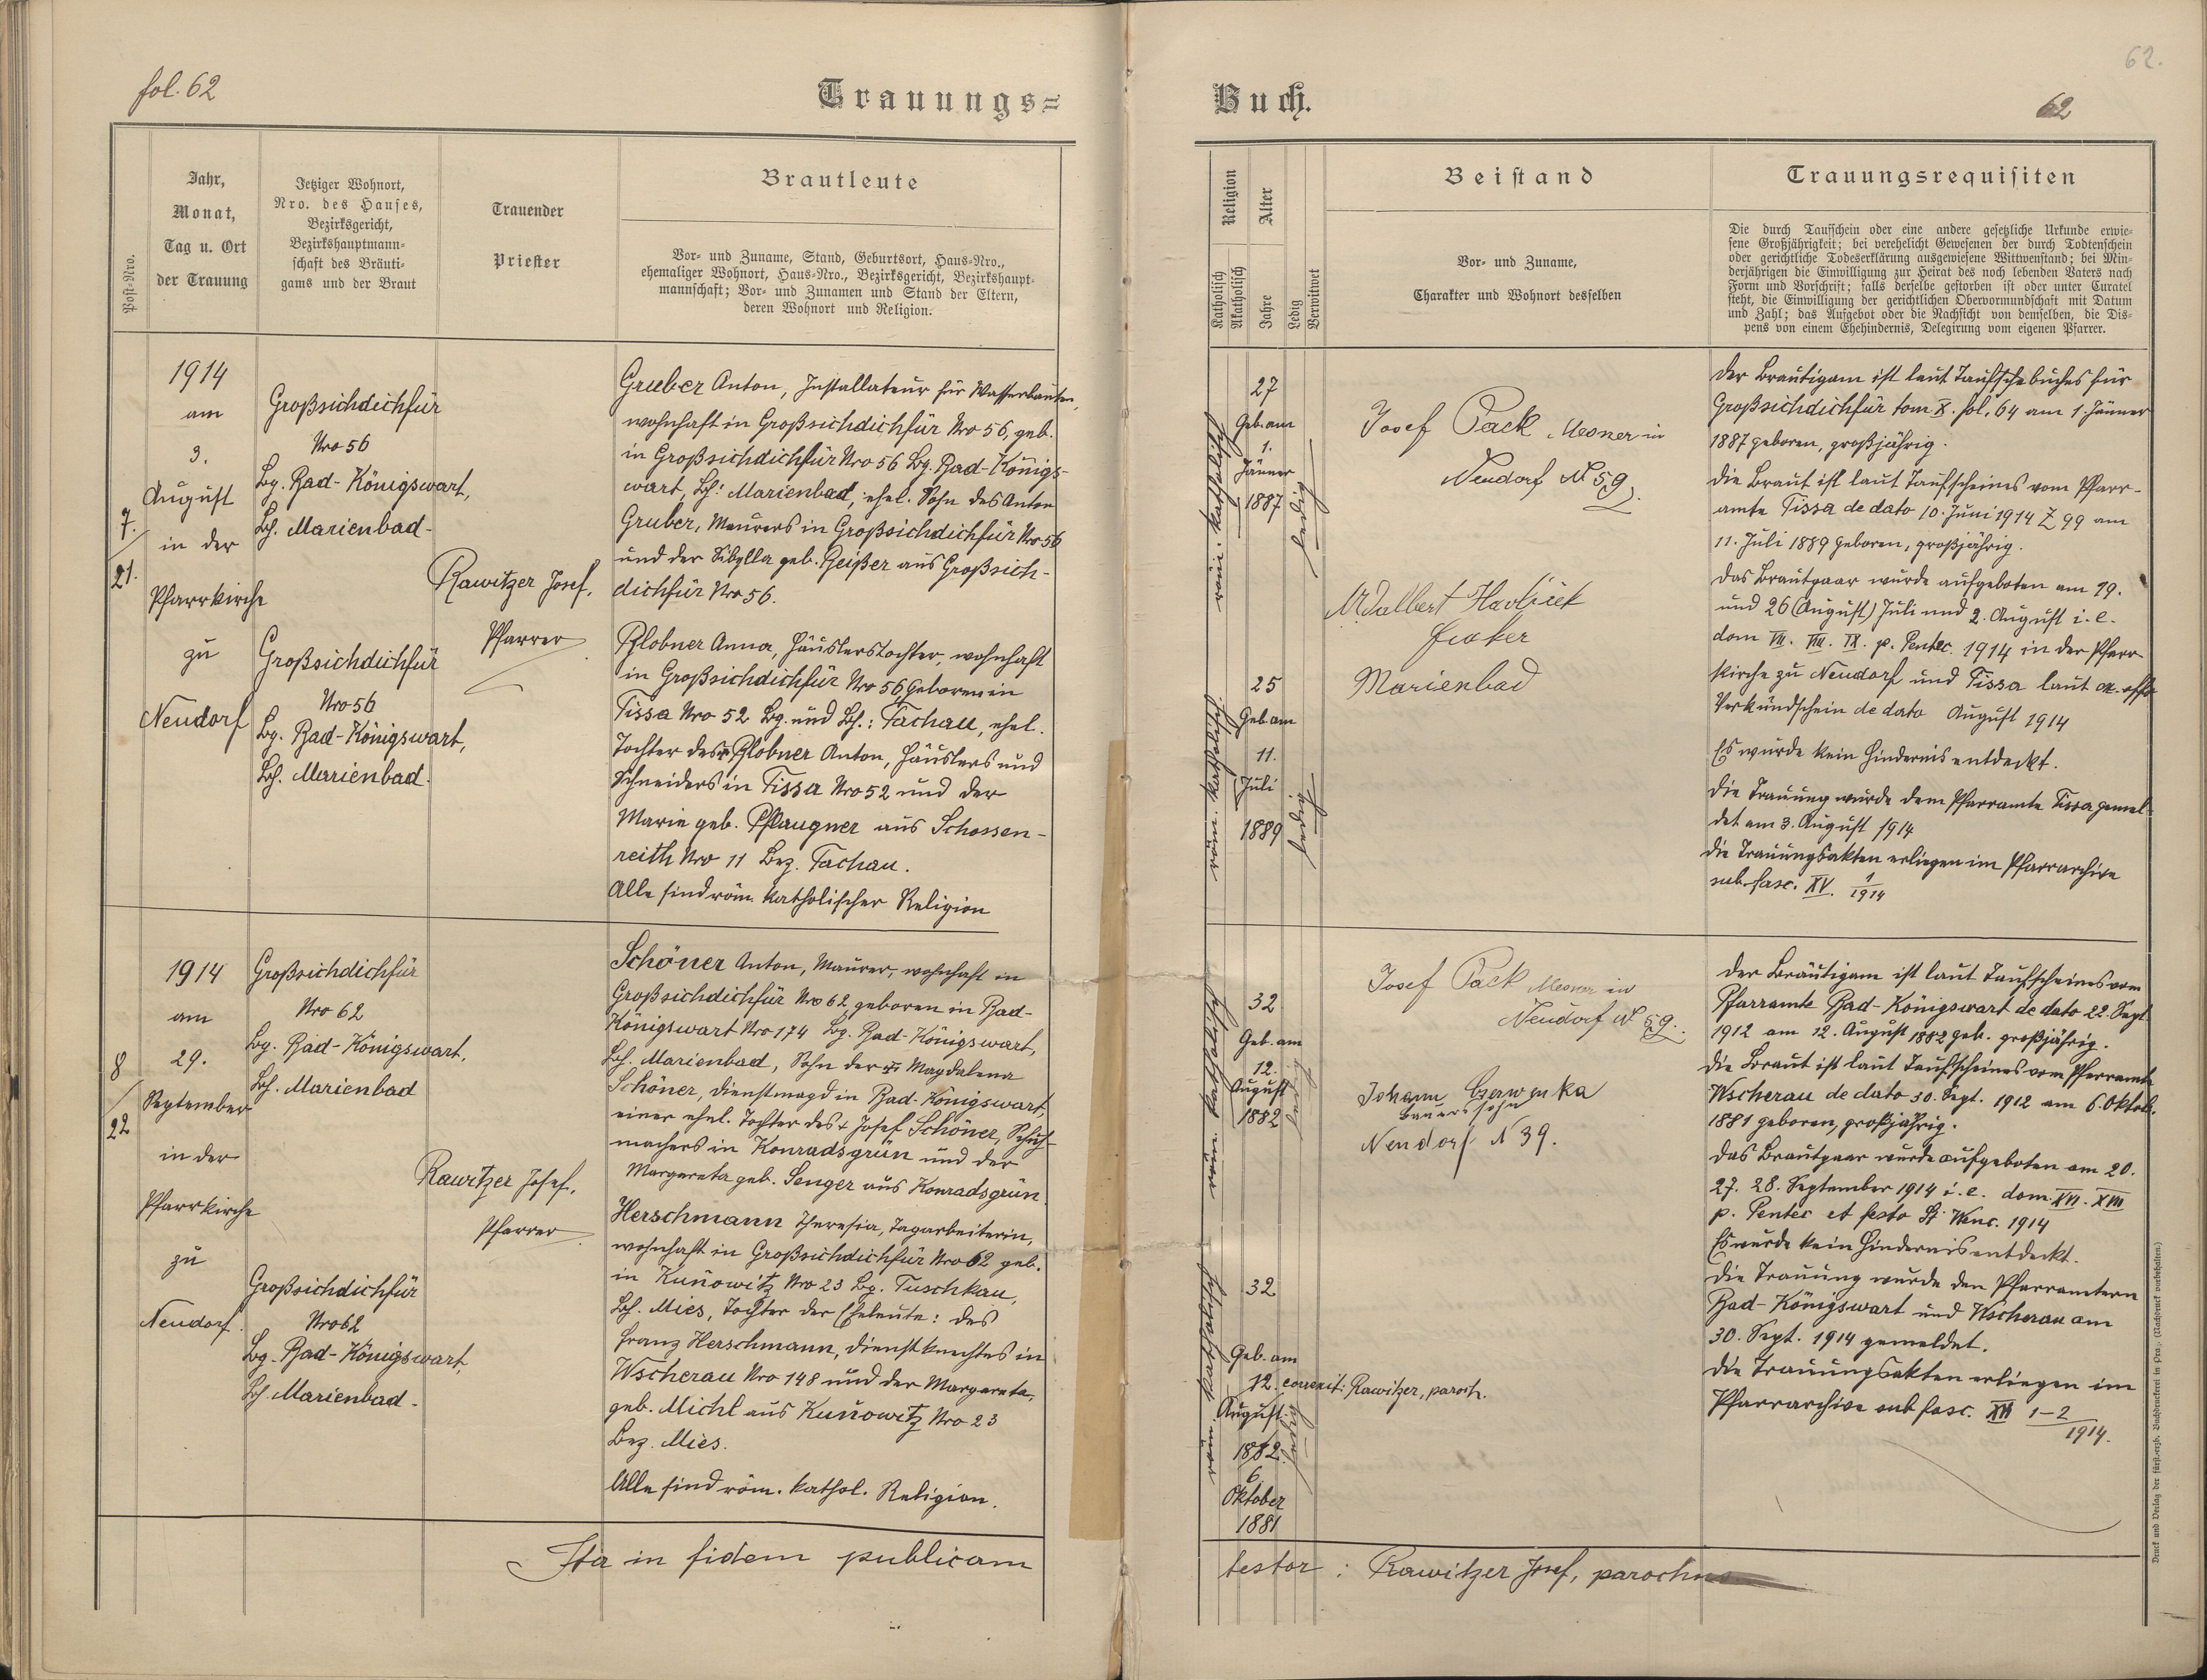 fol. 62
Trauungs=
Post-Nro.
Jahr,
Monat,
Tag u. Ort
der Trauung
Jetziger Wohnort,
Nro. des Hauses,
Bezirksgericht,
Bezirkshauptmann-
schaft des Bräuti-
gams und der Braut
Trauender
Priester
Brautleute
Vor- und Zuname, Stand, Geburtsort, Haus-Nro.,
ehemaliger Wohnort, Haus-Nro., Bezirksgericht, Bezirkshaupt-
mannschaft; Vor- und Zunamen und Stand der Eltern,
deren Wohnort und Religion.
7.
21.
1914
am
3.
August
in der
Pfarrkirche
zu
Neudorf
Großsichdichfür
Nro 56
Bg. Bad-Königswart,
Bh. Marienbad-
Großsichdichfür
Nro 56
Bg. Bad-Königswart,
Bh. Marienbad.
Rawitzer Josef,
Pfarrer
Gruber Anton, Installateur für Wasserbauten,
wohnhaft in Großsichdichfür Nro 56, geb.
in Großsichdichfür Nro 56 Bg. Bad-Königs-
wart, Bh: Marienbad, ehel. Sohn des Anton
Gruber, Maurers in Großsichdichfür Nro 56
und der Sibylla geb. Beißer aus Großsich-
dichfür Nro 56.
Plobner Anna, Häuslerstochter, wohnhaft
in Großsichdichfür Nro 56, geboren in
Tissa Nro 52 Bg. und Bh.: Tachau, ehel.
Tochter des Plobner Anton, Häuslers und
Schneiders in Tissa Nro 52 und der
Marie geb. Pflaugner aus Schossen-
reith Nro 11 Bez. Tachau.
Alle sind röm. katholischer Religion
8
22
1914
am
29.
September
in der
Pfarrkirche
zu
Neudorf.
Großsichdichfür
Nro 62
Bg. Bad-Königswart,
Bh. Marienbad
Großsichdichfür
Nro 62
Bg. Bad-Königswart,
Bh. Marienbad.
Rawitzer Josef,
Pfarrer
Schöner Anton, Maurer, wohnhaft in
Großsichdichfür Nro 62 geboren in Bad-
Königswart Nro 174 Bg. Bad-Königswart,
Bh. Marienbad, Sohn der Magdalena
Schöner, Dienstmagd in Bad-Königswart,
einer ehel. Tochter des + Josef Schöner, Schuh-
machers in Konradsgrün und der
Margareta geb. Senger aus Konradsgrün.
Herschmann Theresia, Tagarbeiterin,
wohnhaft in Großsichdichfür Nro 62 geb.
in Kunowitz Nro 23 Bg. Tuschkau,
Bh. Mies, Tochter der Eheleute: des
Franz Herschmann, Dienstknechtes in
Wscherau Nro 148 und der Margareta,
geb. Michl aus Kunowitz Nro 23
Bez. Mies.
Alle sind röm. kathol. Religion.
Ita in fidem publicam
62.
Buch.
62
Religion
Katholisch
Akatholisch
Alter
Jahre
Ledig
Verwitwet
Beistand
Vor- und Zuname,
Charakter und Wohnort desselben
Trauungsrequisiten
Die durch Taufschein oder eine andere gesetzliche Urkunde erwie-
sene Großjährigkeit; bei verehelicht Gewesenen der durch Todtenschein
oder gerichtliche Todeserklärung ausgewiesene Wittwenstand; bei Min-
derjährigen die Einwilligung zur Heirat des noch lebenden Vaters nach
Form und Vorschrift; falls derselbe gestorben ist oder unter Curatel
steht, die Einwilligung der gerichtlichen Obervormundschaft mit Datum
und Zahl; das Aufgebot oder die Nachsicht von demselben, die Dis-
pens von einem Ehehindernis, Delegirung vom eigenen Pfarrer.
röm. katholisch
27
Geb. am
1.
Jänner
1887
ledig
röm. katholisch
25
Geb. am
11.
Juli
1889
ledig
Josef Pack Mesner in
Neudorf N 59.
Adalbert Havlicek
Fiaker
Marienbad
Der Bräutigam ist laut Taufbuches für
Großsichdichfür tom X. fol. 64 am 1. Jänner
1887 geboren, großjährig.
Die Braut ist laut Taufscheines vom Pfarr-
amte Tissa de dato 10. Juni 1914 Z 99 am
11. Juli 1889 geboren, großjährig.
Das Brautpaar wurde aufgeboten am 19.
und 26 (August) Juli und 2. August i. e.
dom VII. VIII. IX. p. Pentec. 1914 in der Pfarr-
kirche zu Neudorf und Tissa laut
Verkündschein de dato August 1914
Es wurde kein Hindernis entdeckt.
Die Trauung wurde dem Pfarramte Tissa gemel-
det am 3. August 1914
Die Trauungsakten erliegen im Pfarrarchive
sub fasc. XV. 1/1914
röm. katholisch
32
Geb. am
12.
August
1882
ledig
röm. katholisch
32
Geb. am
12. correxit: Rawitzer, paroch.
August
1882
6.
Oktober
1881
ledig
Josef Pack Mesner in
Neudorf N 59.
Johann Czerwenka
Bauerssohn
Neudorf N 39.
Der Bräutigam ist laut Taufscheines vom
Pfarramte Bad-Königswart de dato 22. Sept.
1912 am 12. August 1882 geb. großjährig.
Die Braut ist laut Taufscheines vom Pfarramte
Wscherau de dato 30. Sept. 1912 am 6. Oktob.
1881 geboren, großjährig.
Das Brautpaar wurde aufgeboten am 20.
27. 28. September 1914 i. e. dom. XVI. XVII
p. Pentec et festo St. Wenc. 1914
Es wurde kein Hindernis entdeckt.
Die Trauung wurde den Pfarrämtern
Bad-Königswart und Wscherau am
30. Sept. 1914 gemeldet.
Die Trauungsakten erliegen im
Pfarrarchive sub fasc. 1-2/1914.
testor: Rawitzer Josef, parochus